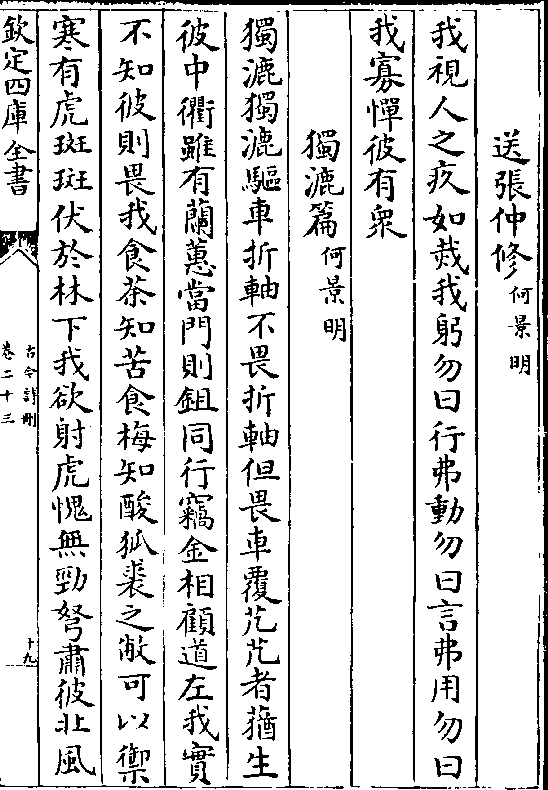 送張仲修何景明
我視人之疚如烖我躬勿曰行弗動勿曰言弗用勿曰
我寡憚彼有衆
獨漉篇何景明
獨漉獨漉驅車折軸不畏折軸但畏車覆芃芃者蕕生
彼中衢雖有蘭蕙當門則鉏同行竊金相顧道左我實
不知彼則畏我食茶知苦食梅知酸狐裘之敝可以禦
寒有虎斑斑伏於林下我欲射虎愧無勁弩肅彼北風
欽定四庫全書
古今詩刪
卷二十三
十九